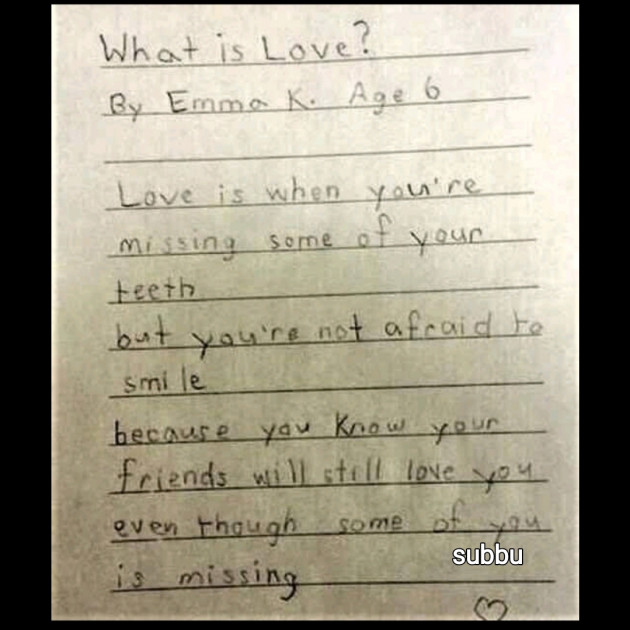 What is Love?
By Emma K. Age 6
Love is when you're
missing some of your
teeth
but you're not afraid to
smile
because you know your
friends will still love you
even though some of you
subbu
is missing